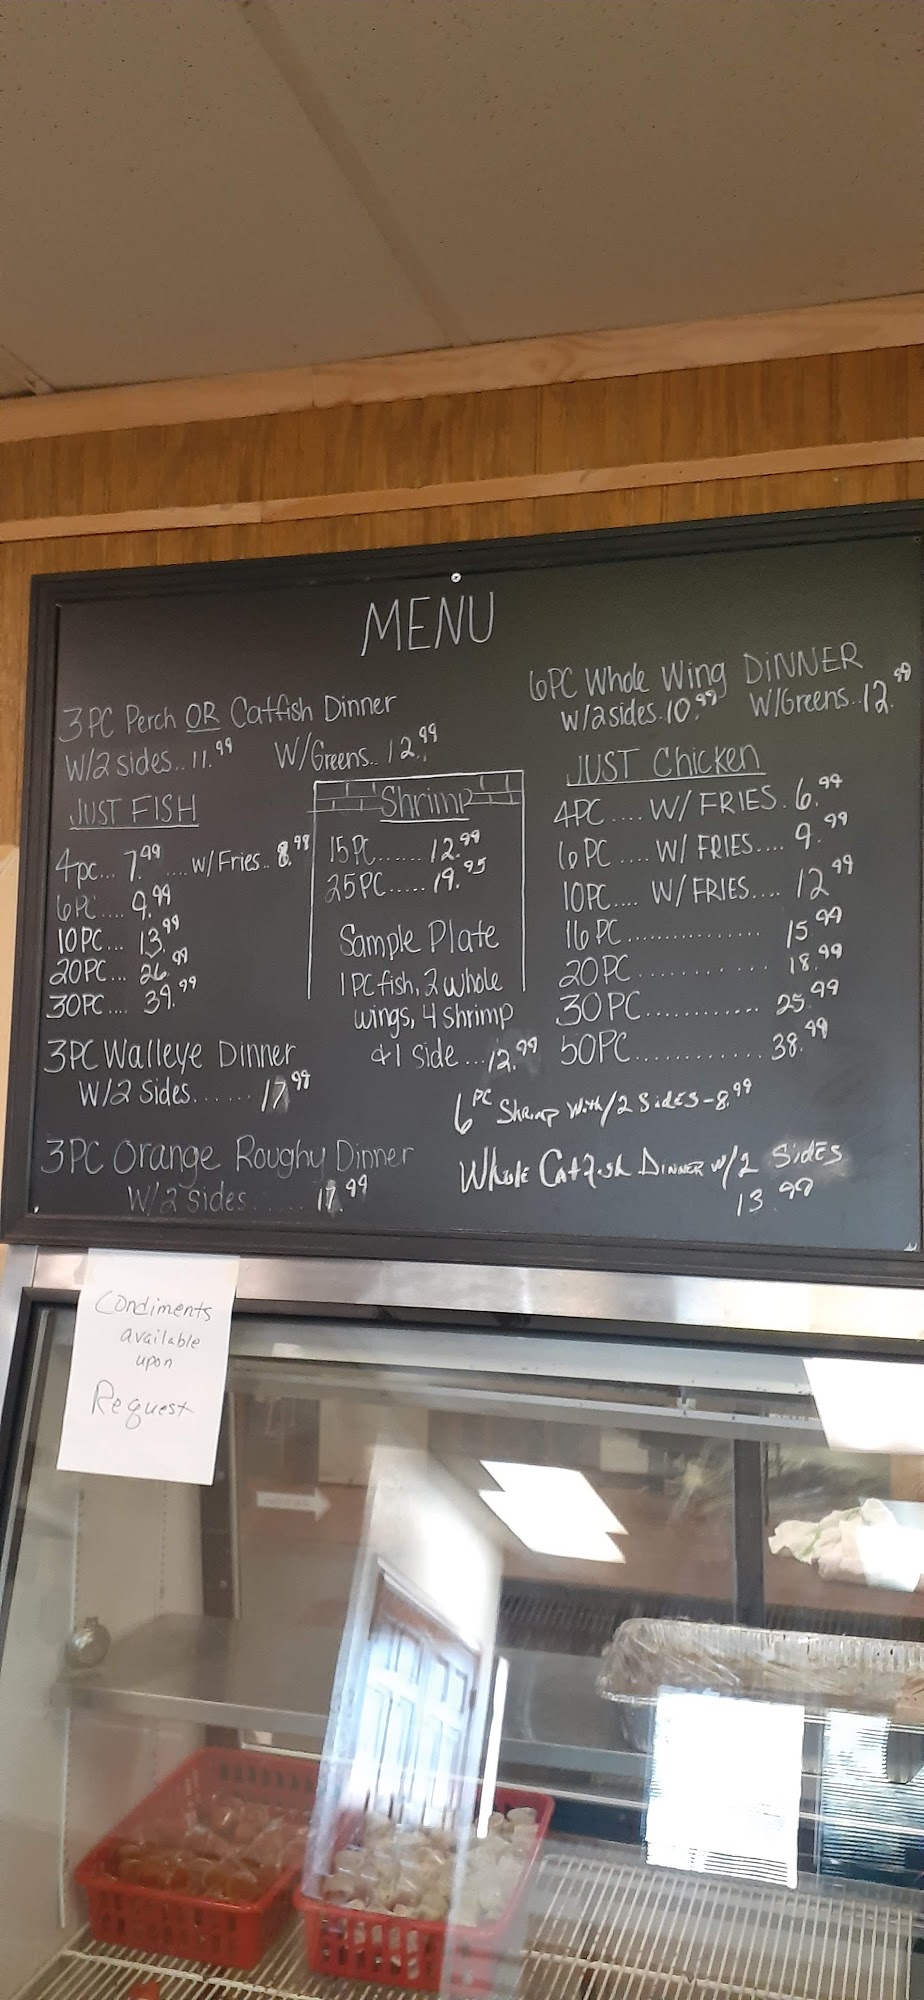 MENU
3PC Perch OR Catfish Dinner
W/2 sides.. 11.99 W/Greens.. 12.99
JUST FISH
4pc... 7.99 .... w/Fries.. 8.99
6PC.... 9.99
10PC... 13.99
20PC... 26.99
30PC.... 39.99
3PC Walleye Dinner
W/2 Sides...... 17.99
3PC Orange Roughy Dinner
W/2 sides...... 17.99
Shrimp
15PC...... 12.99
25PC..... 19.95
Sample Plate
1PC fish, 2 whole
wings, 4 shrimp
& 1 Side... 12.99
6PC Whole Wing DINNER
W/2 sides. 10.99 W/Greens.. 12.99
JUST Chicken
4PC .... W/ FRIES. 6.99
6PC .... W/ FRIES.... 9.99
10PC.... W/ FRIES.... 12.99
16PC............... 15.99
20PC........... 18.99
30PC............ 25.99
50PC............ 38.99
6PC Shrimp With/2 Sides-8.99
Whole Catfish Dinner w/2 Sides
13.99
Condiments
available
upon
Request